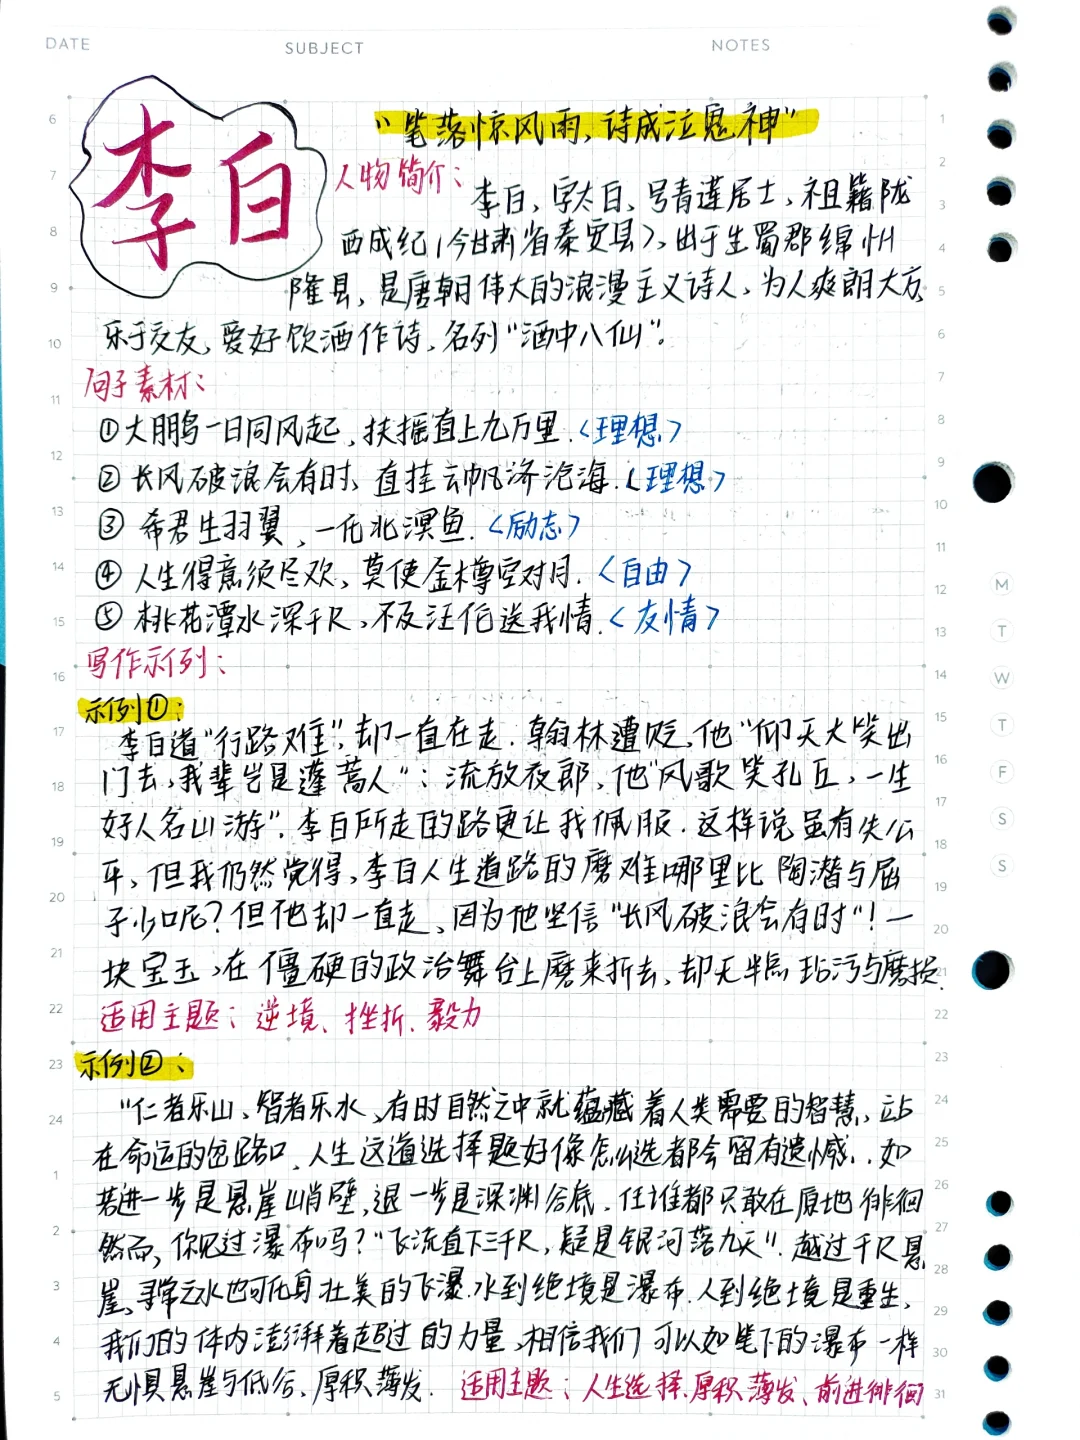 DATE SUBJECT NOTES
李白
"笔落惊风雨，诗成泣鬼神"
人物简介：
李白，字太白，号青莲居士，祖籍陇
西成纪（今甘肃省秦安县），出于生蜀郡绵州
隆县，是唐朝伟大的浪漫主义诗人，为人爽朗大方，
乐于交友，爱好饮酒作诗，名列"酒中八仙"。
句子素材：
①大鹏鸟一日同风起，扶摇直上九万里.〈理想〉
②长风破浪会有时，直挂云帆济沧海.〈理想〉
③希君生羽翼，一化北溟鱼.〈励志〉
④人生得意须尽欢，莫使金樽空对月.〈自由〉
⑤桃花潭水深千尺，不及汪伦送我情.〈友情〉
写作示列：
示例①：
李白道"行路难"，却一直在走.翰林遭贬，他"仰天大笑出
门去，我辈岂是蓬蒿人"；流放夜郎，他"风歌笑孔丘，一生
好人名山游".李白所走的路更让我佩服.这样说虽有失公
平，但我仍然觉得，李白人生道路的磨难哪里比陶潜与屈
子少呢？但他却一直走，因为他坚信"长风破浪会有时"！一
块宝玉，在僵硬的政治舞台上磨来折去，却无半点玷污与磨损.
适用主题：逆境、挫折、毅力
示例②：
"仁者乐山，智者乐水，有时自然之中就蕴藏着人类需要的智慧，站
在命运的岔路口，人生这道选择题好像怎么选都会留有遗憾..如
若进一步是悬崖峭壁，退一步是深渊谷底.任谁都只敢在原地徘徊
然而，你见过瀑布吗？"飞流直下三千尺，疑是银河落九天".越过千尺悬
崖，寻常之水也可化身壮美的飞瀑.水到绝境是瀑布.人到绝境是重生，
我们的体内澎湃着超过的力量，相信我们可以如笔下的瀑布一样
无惧悬崖与低谷，厚积薄发. 适用主题：人生选择、厚积薄发、前进徘徊
6
7
8
9
10
11
12
13
14
15
16
17
18
19
20
21
22
23
24
1
2
3
4
5
1
2
3
4
5
6
7
8
9
10
11
12
13
14
15
16
17
18
19
20
21
22
23
24
25
26
27
28
29
30
31
M
T
W
T
F
S
S